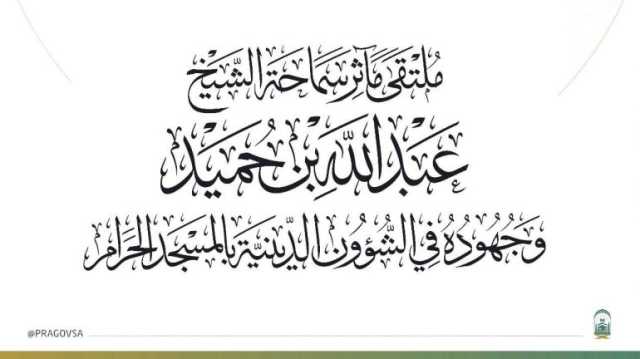 مُلْتَقَى مَآثِر سَمَاحَة الشَّيْخ
عَبْد اللَّه بْن حُمَيْد
وَجُهُودُهُ فِي الشُّؤُون الدِّينِيَّة بِالمَسْجِد الحَرَام
@PRAGOVSA